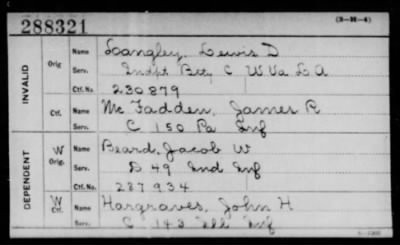 288321
(3-M-4)
INVALID
Orig
Name Langley, Lewis D
Serv. Indpt Bty C W Va L A
Ctf. No. 230879
Ctf.
Name Mc Fadden, James R
Serv. C 150 Pa Inf
DEPENDENT
W Orig.
Name Beard, Jacob W
Serv. D 49 Ind Inf
Ctf. No. 287934
W Ctf.
Name Hargraves, John H
Serv. C 143 Ill Inf